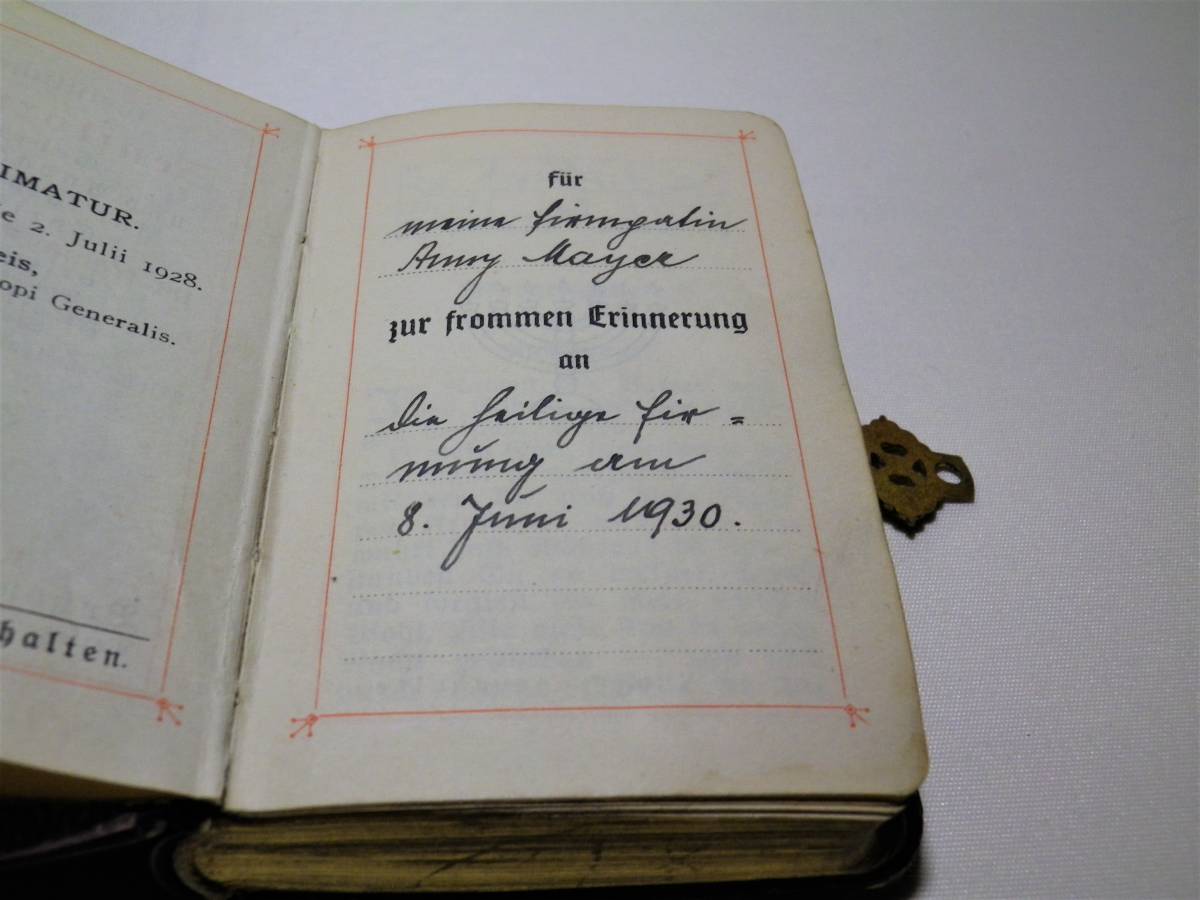 IMATUR.
e 2. Julii 1928.
eis,
opi Generalis.
halten.
für
meine Firmpatin
Anny Mayer
zur frommen Erinnerung
an
die heilige Fir =
mung am
8. Juni 1930.